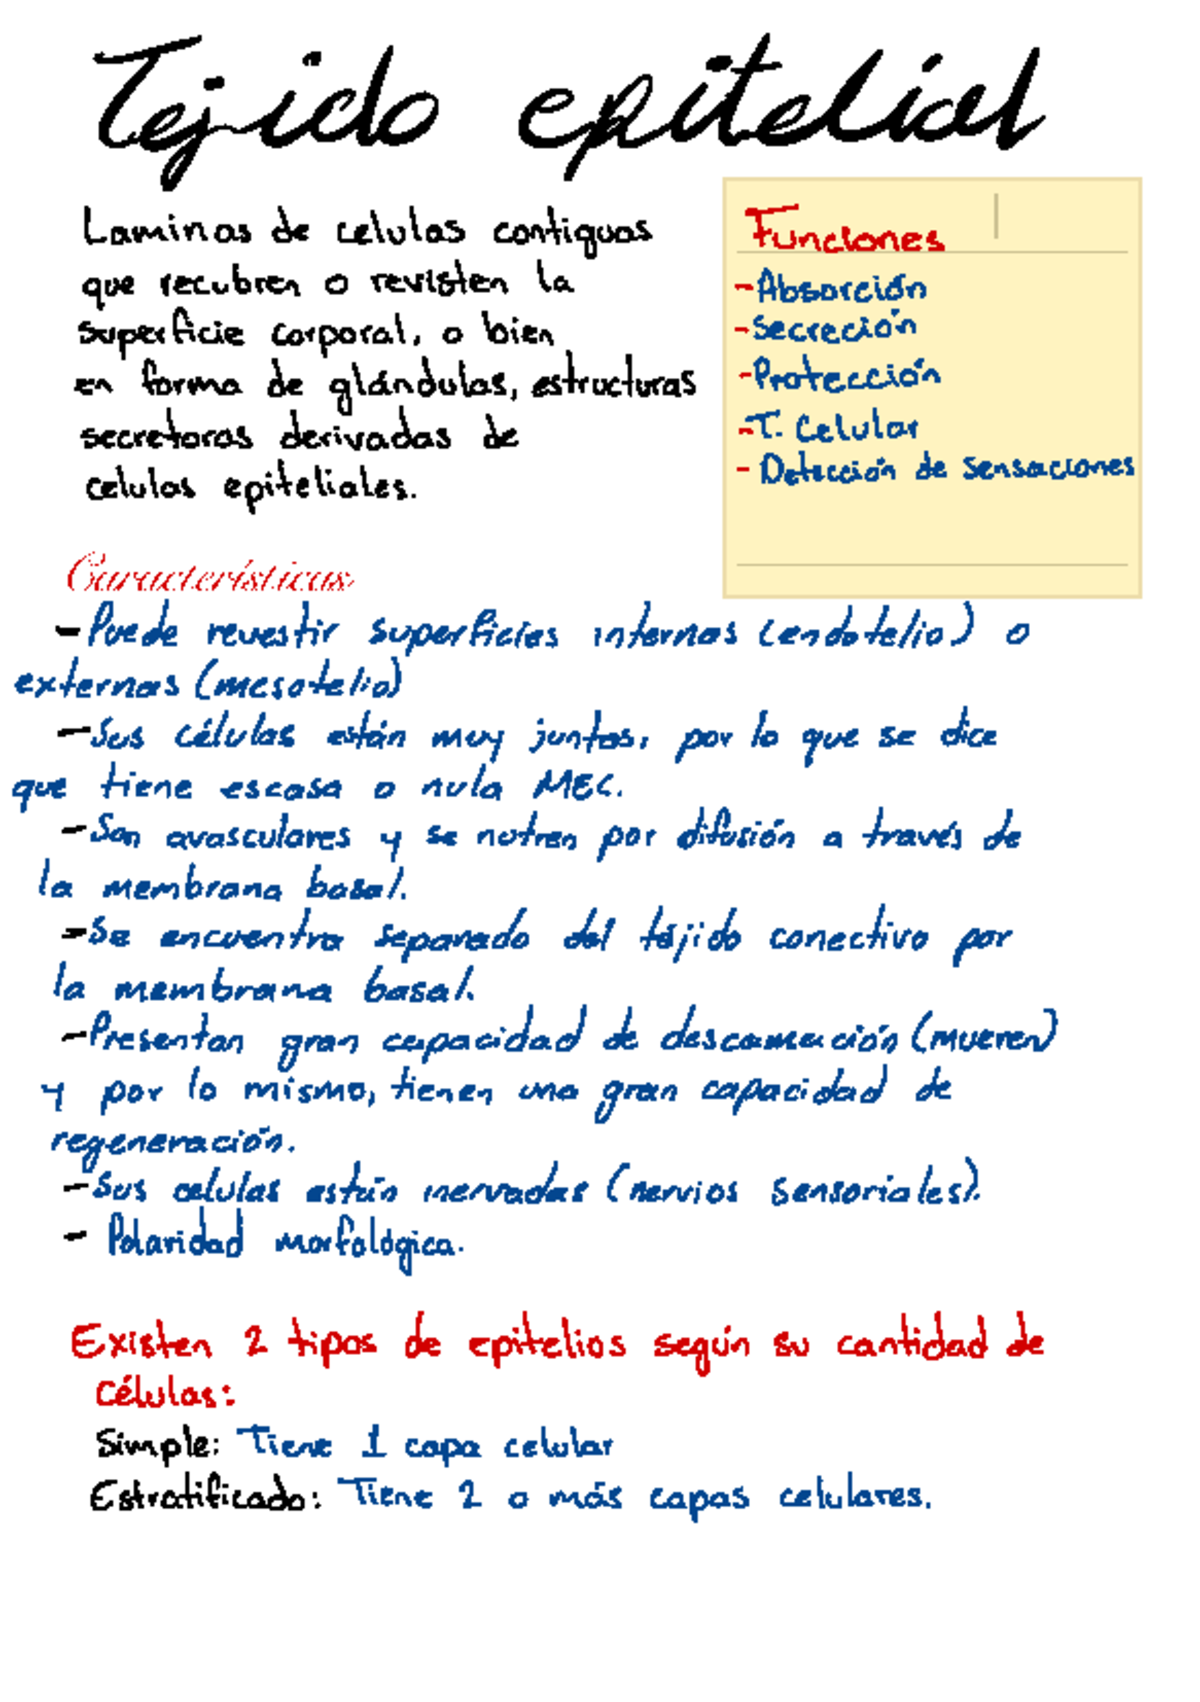 Tejido epitelial
Laminas de celulas contiguas
que recubren o revisten la
superficie corporal, o bien
en forma de glándulas, estructuras
secretoras derivadas de
celulas epiteliales.
Funciones
-Absorción
-Secreción
-Protección
-T. Celular
- Detección de sensaciones
Características
-Puede revestir superficies internas (endotelio) o
externas (mesotelio)
-Sus células están muy juntas, por lo que se dice
que tiene escasa o nula MEC.
-Son avasculares y se nutren por difusión a través de
la membrana basal.
-Se encuentra separado del tejido conectivo por
la membrana basal.
-Presentan gran capacidad de descamación (mueren)
y por lo mismo, tienen una gran capacidad de
regeneración.
-Sus celulas están inervadas (nervios sensoriales).
- Polaridad morfológica.
Existen 2 tipos de epitelios según su cantidad de
células:
Simple: Tiene 1 capa celular
Estratificado: Tiene 2 o más capas celulares.